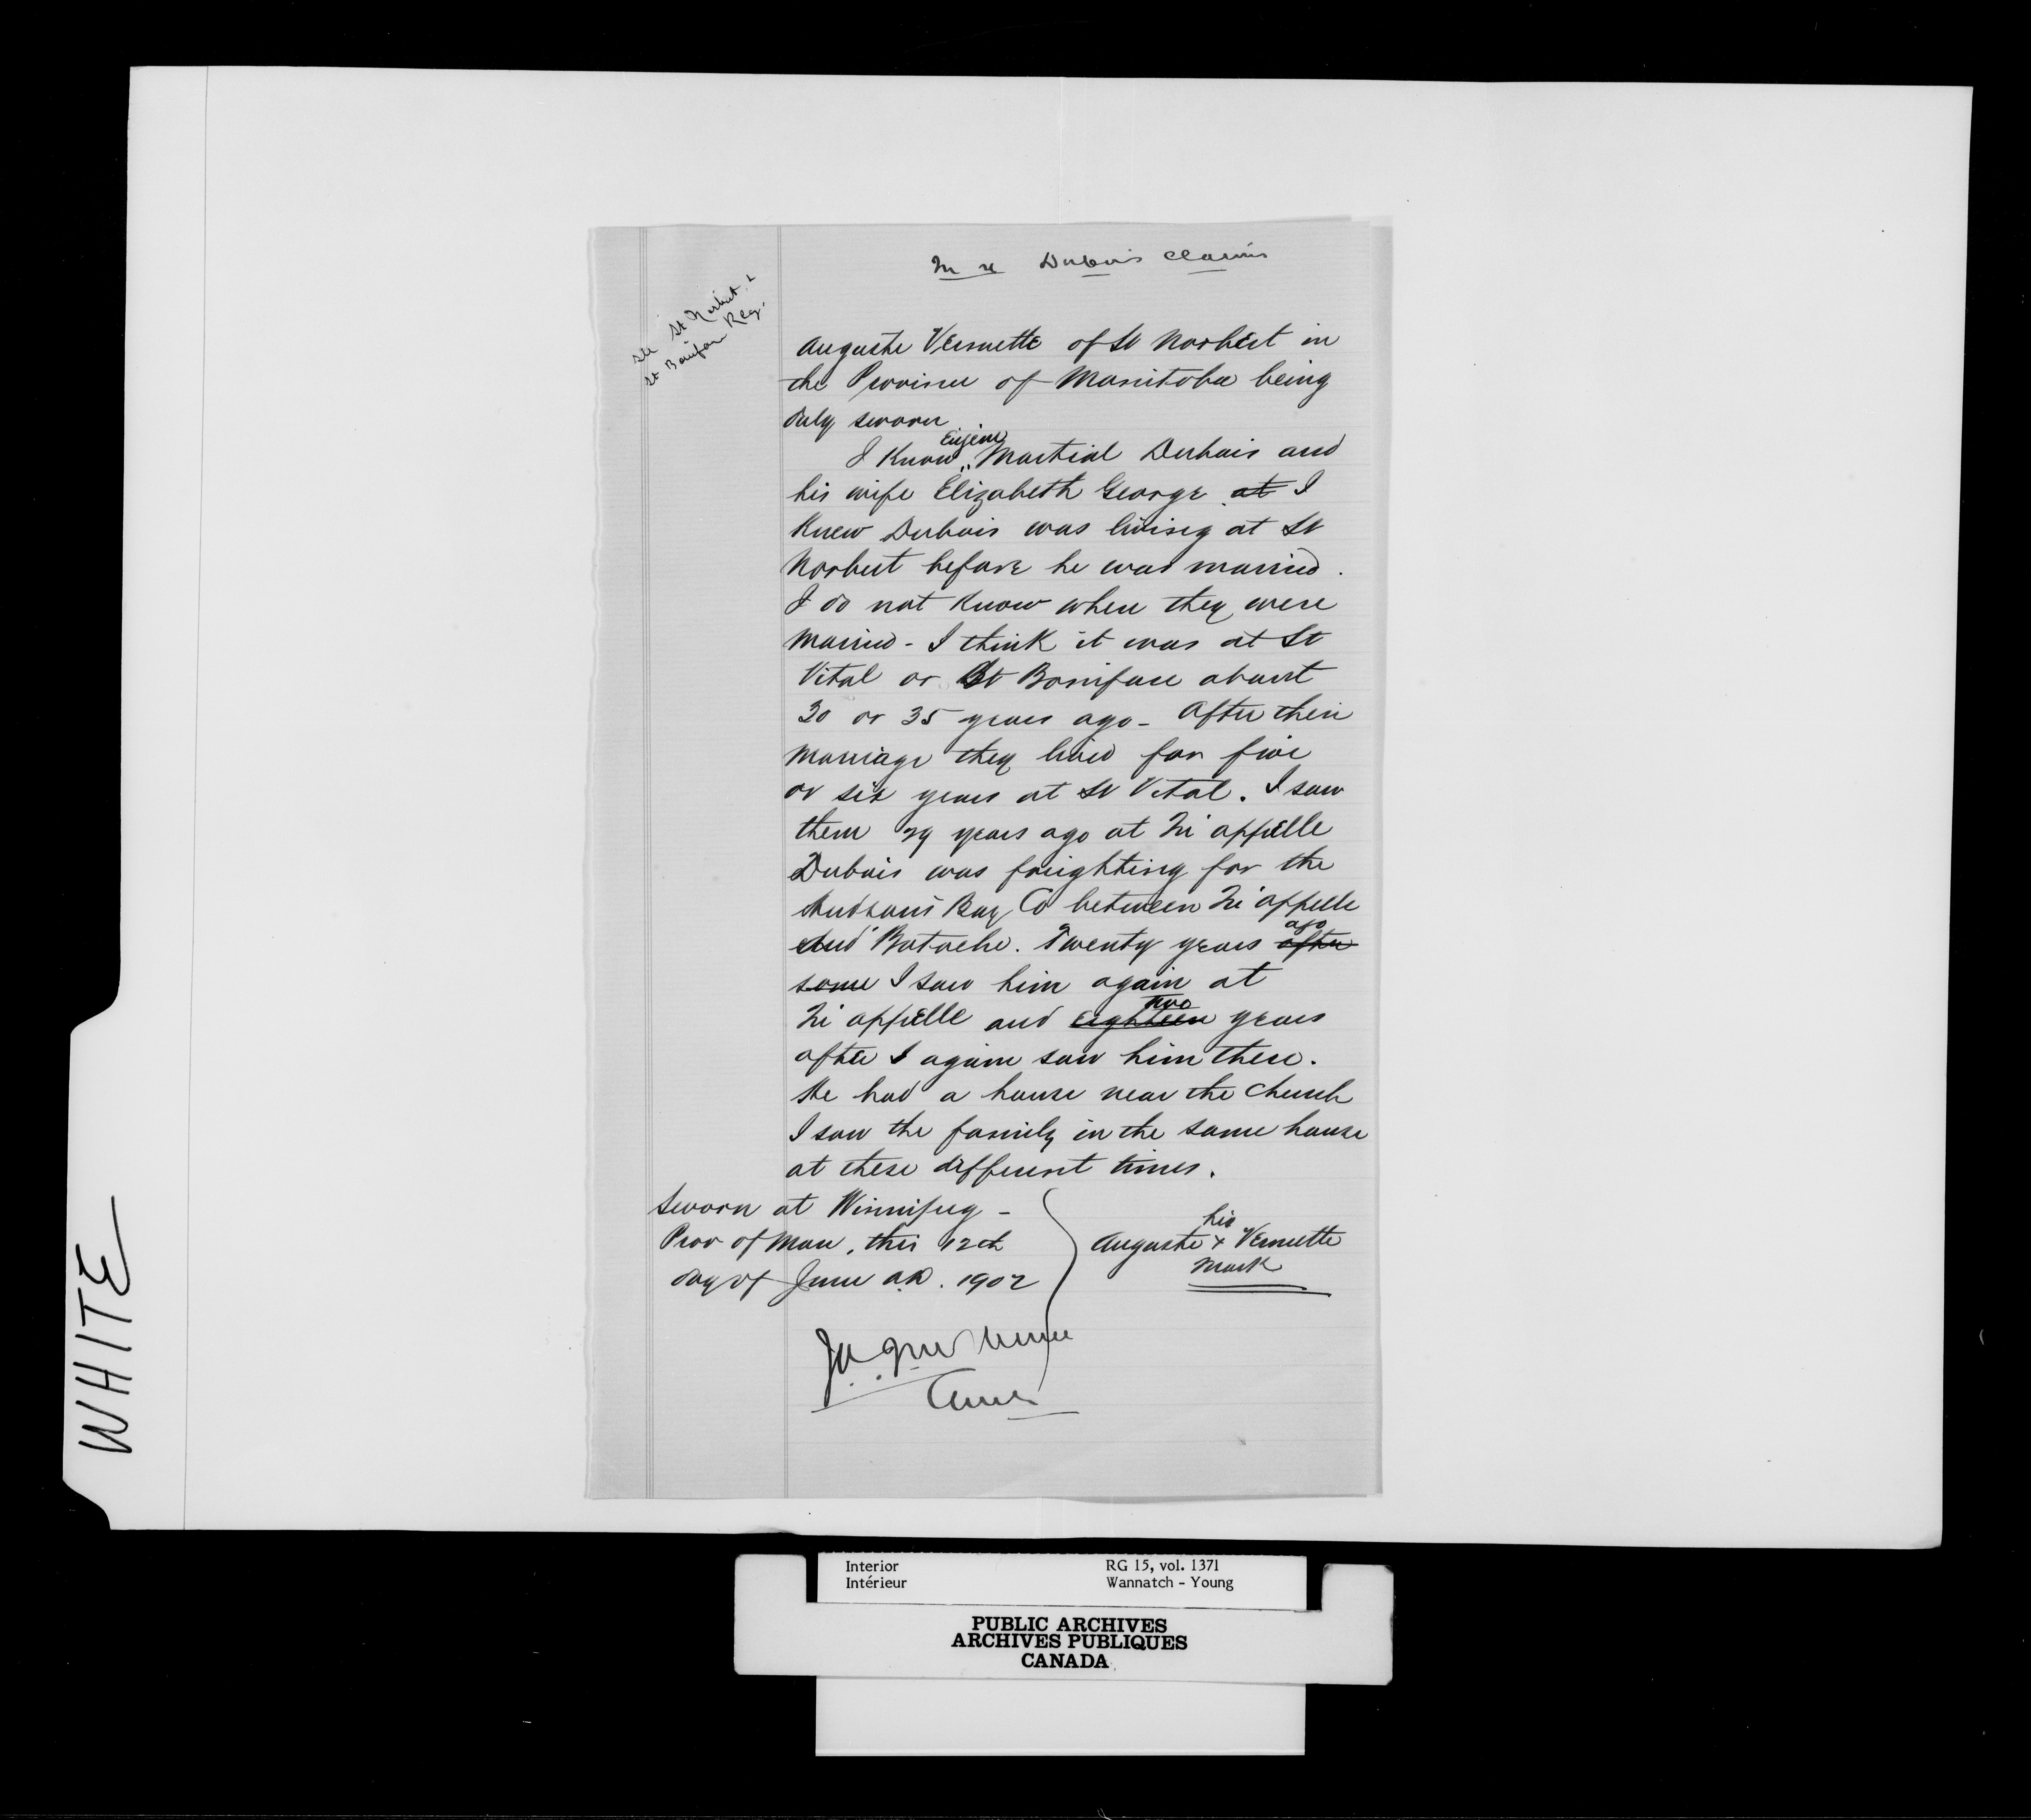 In re Dubois claims
See St Norbert &
St Boniface Reg.
Auguste Vermette of St Norbert in
the Province of Manitoba being
duly sworn
Eugene
I know " Martial Dubois and
his wife Elizabeth George at I
knew Dubois was living at St
Norbert before he was married.
I do not know when they were
married - I think it was at St
Vital or St Boniface about
30 or 35 years ago - After their
marriage they lived for five
or six years at St Vital. I saw
them 29 years ago at Qu'appelle
Dubois was freighting for the
Hudson's Bay Co between Qu'appelle
and Batoche. Twenty years after
ago
some I saw him again at
two
Qu'appelle and eighteen years
after I again saw him there.
He had a house near the church
I saw the family in the same house
at these different times.
Sworn at Winnipeg -
Prov of Man, this 12th
day of June A.D. 1902
his
Auguste x Vermette
mark
WHITE
Interior
Intérieur
RG 15, vol. 1371
Wannatch - Young
PUBLIC ARCHIVES
ARCHIVES PUBLIQUES
CANADA